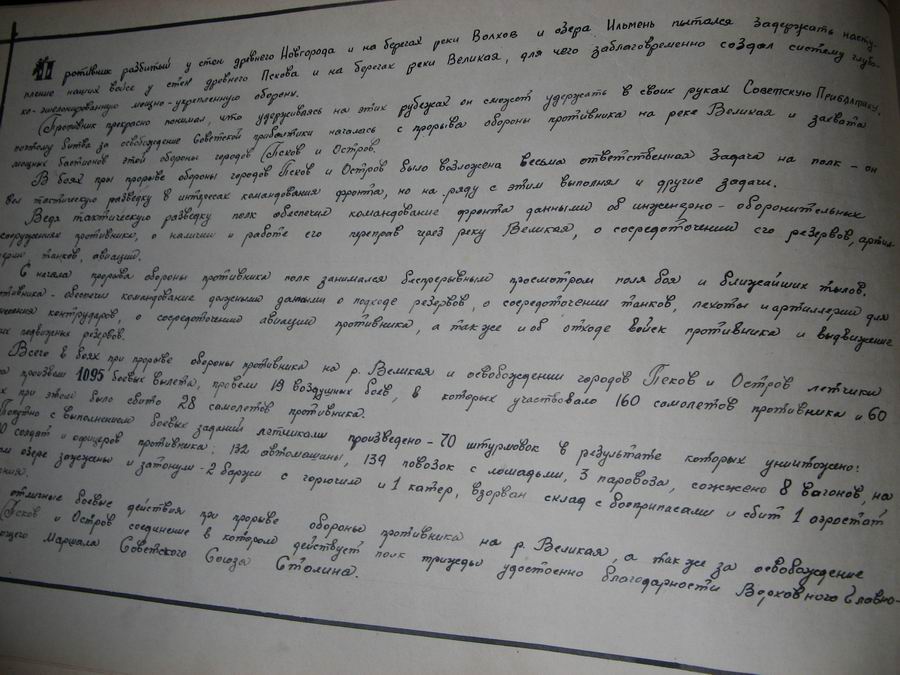 Противник разбитый у стен древнего Новгорода и на берегах реки Волхов и озера Ильмень пытался задержать насту-
пление наших войск у стен древнего Пскова и на берегах реки Великая, для чего заблаговременно создал систему глубо-
ко-эшелонированную мощно-укрепленную оборону.
Противник прекрасно понимал, что удерживаясь на этих рубежах он сможет удержать в своих руках Советскую Прибалтику,
поэтому битва за освобождение Советской прибалтики началась с прорыва обороны противника на реке Великая и захвата
мощных бастионов этой обороны городов Псков и Остров.
В боях при прорыве обороны городов Псков и Остров было возложена весьма ответственная задача на полк - он
вел тактическую разведку в интересах командования фронта, но на ряду с этим выполнял и другие задачи.
Ведя тактическую разведку полк обеспечил командование фронта данными об инженерно-оборонительных
сооружениях противника, о наличии и работе его переправ через реку Великая, о сосредоточении его резервов, артил-
лерии, танков, авиации.
С начала прорыва обороны противника полк занимался беспрерывным просмотром поля боя и ближайших тылов
противника - обеспечил командование данными о подходе резервов, о сосредоточении танков, пехоты и артиллерии для
контрударов, о сосредоточении авиации противника, а так же и об отходе войск противника и выдвижение
резервов.
Всего в боях при прорыве обороны противника на р. Великая и освобождении городов Псков и Остров летчики
произвели 1095 боевых вылета, провели 19 воздушных боев, в которых участвовало 160 самолетов противника и 60
при этом было сбито 28 самолетов противника.
Попутно с выполнением боевых заданий летчиками произведено - 70 штурмовок в результате которых уничтожено:
солдат и офицеров противника, 132 автомашины, 139 повозок с лошадьми, 3 паровоза, сожжено 8 вагонов, на
озере зажжены и затонули - 2 баржи с горючим и 1 катер, взорван склад с боеприпасами и сбит 1 аэростат
отличные боевые действия при прорыве обороны противника на р. Великая, а так же за освобождение
Псков и Остров соединение в котором действует полк трижды удостоено благодарности Верховного Главно-
Маршала Советского Союза Сталина.